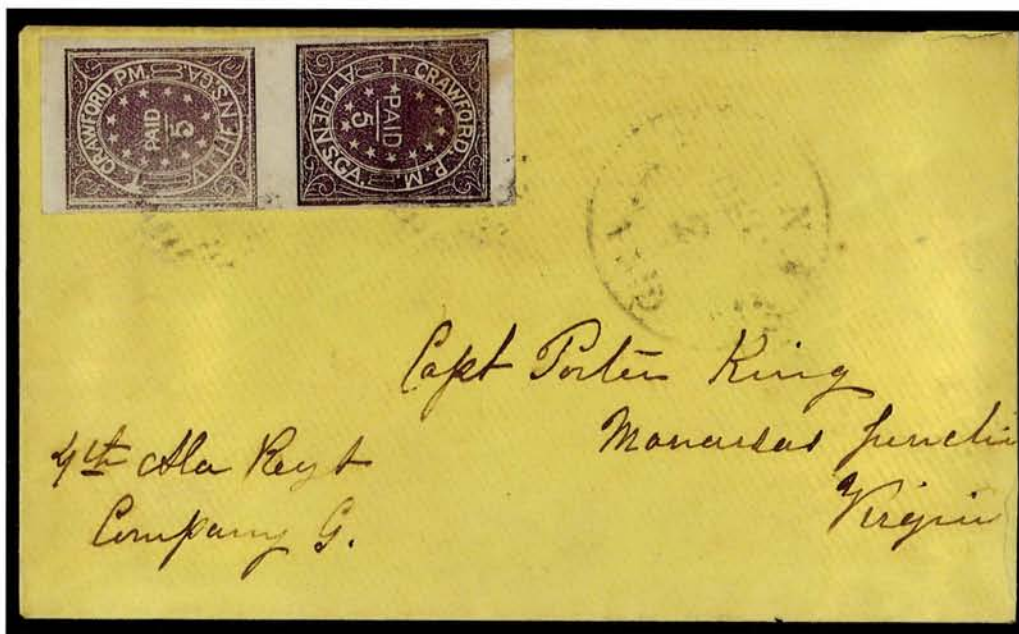 T. CRAWFORD. PM.
ATHENS, GA.
PAID
5
T. CRAWFORD. P. M.
ATHENS, GA.
PAID
5
DEC
2
Capt Porter King
Manassas Junctio
Virginia
4th Ala Regt
Company G.